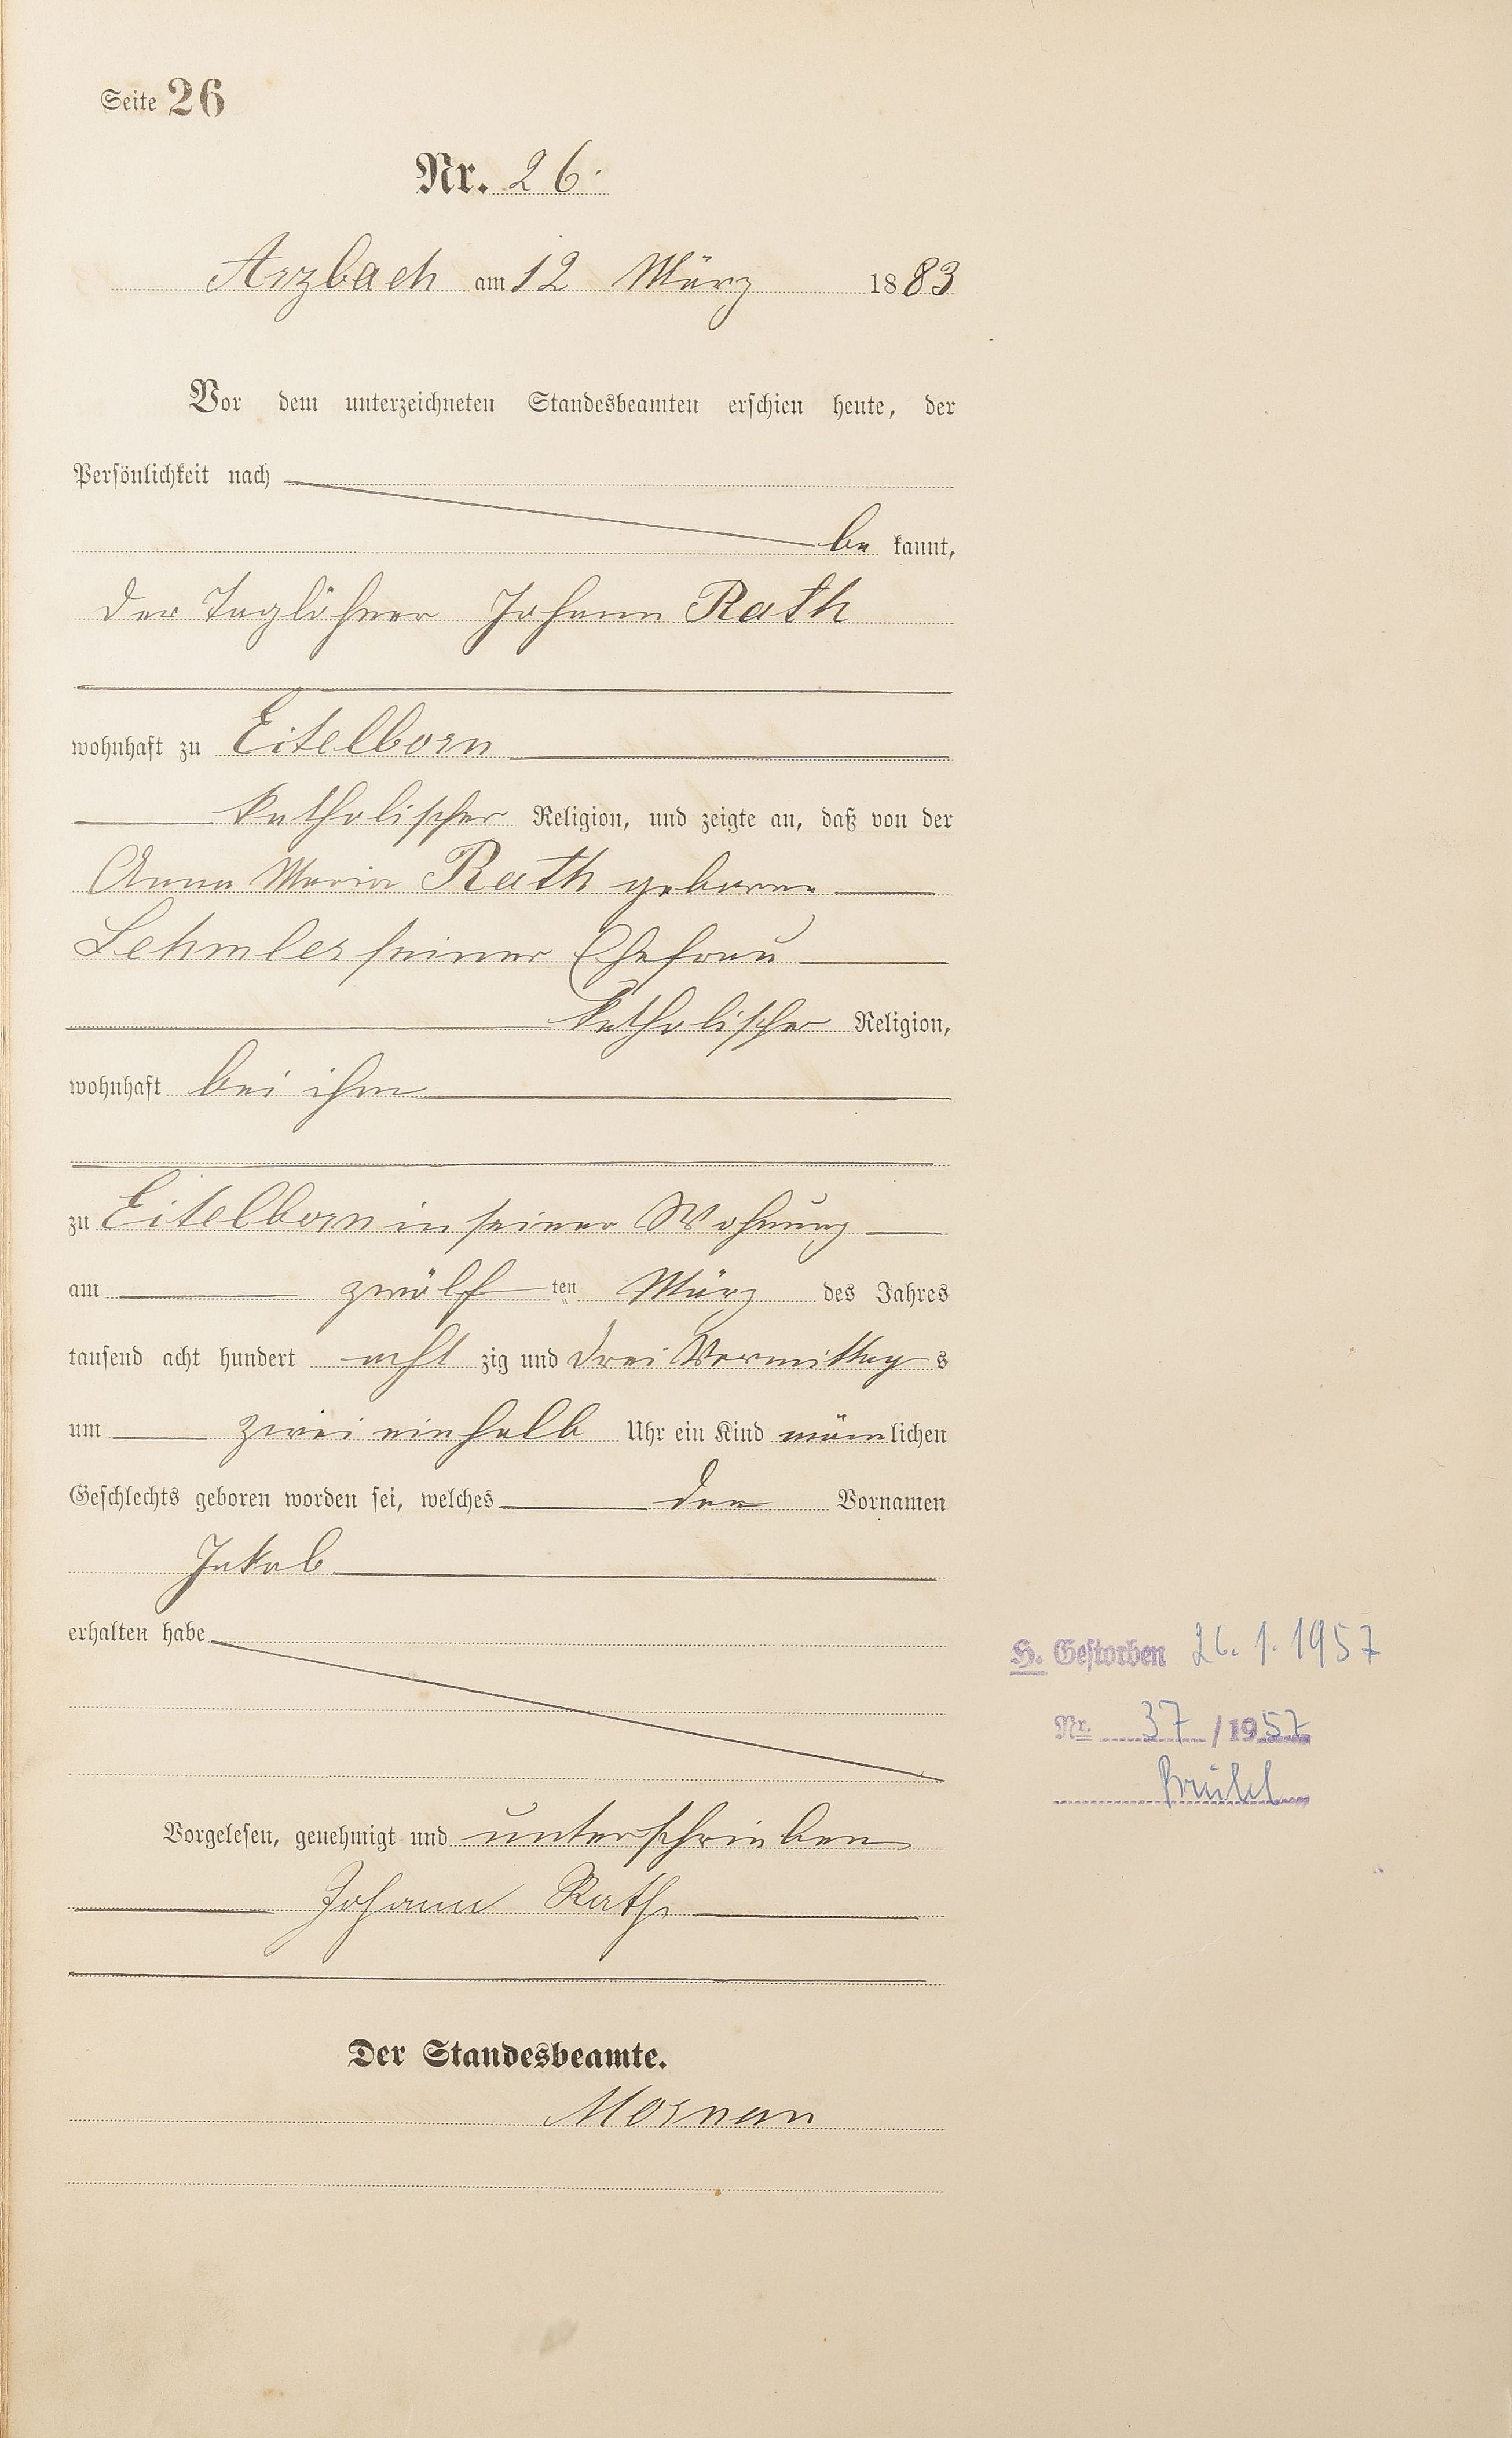 Seite 26
Nr. 26.
Arzbach am 12 März 1883
Vor dem unterzeichneten Standesbeamten erschien heute, der
Persönlichkeit nach
be kannt,
der Taglöhner Johann Rath
wohnhaft zu Eitelborn
katholischer Religion, und zeigte an, daß von der
Anna Maria Rath geborne
Lehmler seiner Ehefrau
katholischer Religion,
wohnhaft bei ihm
zu Eitelborn in seiner Wohnung
am zwölf ten März des Jahres
tausend acht hundert acht zig und drei Vormittag s
um zwei einhalb Uhr ein Kind männlichen
Geschlechts geboren worden sei, welches den Vornamen
Jakob
erhalten habe
Vorgelesen, genehmigt und unterschrieben
Johann Rath
Der Standesbeamte.
Mornan
H. Gestorben 26. 1. 1957
Nr. 37 / 1957
Brühl